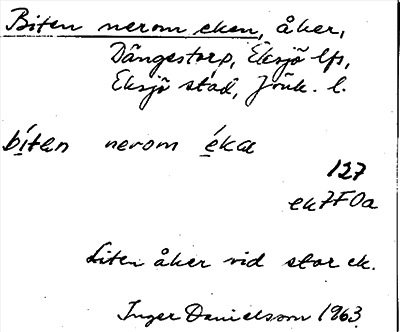 Biten nerom eken, åker,
Dängestorp, Eksjö lfs,
Eksjö stad, Jönk. l.
bítən nerom éka
127
ek 7F0a
Liten åker vid stor ek.
Inger Danielsson 1963